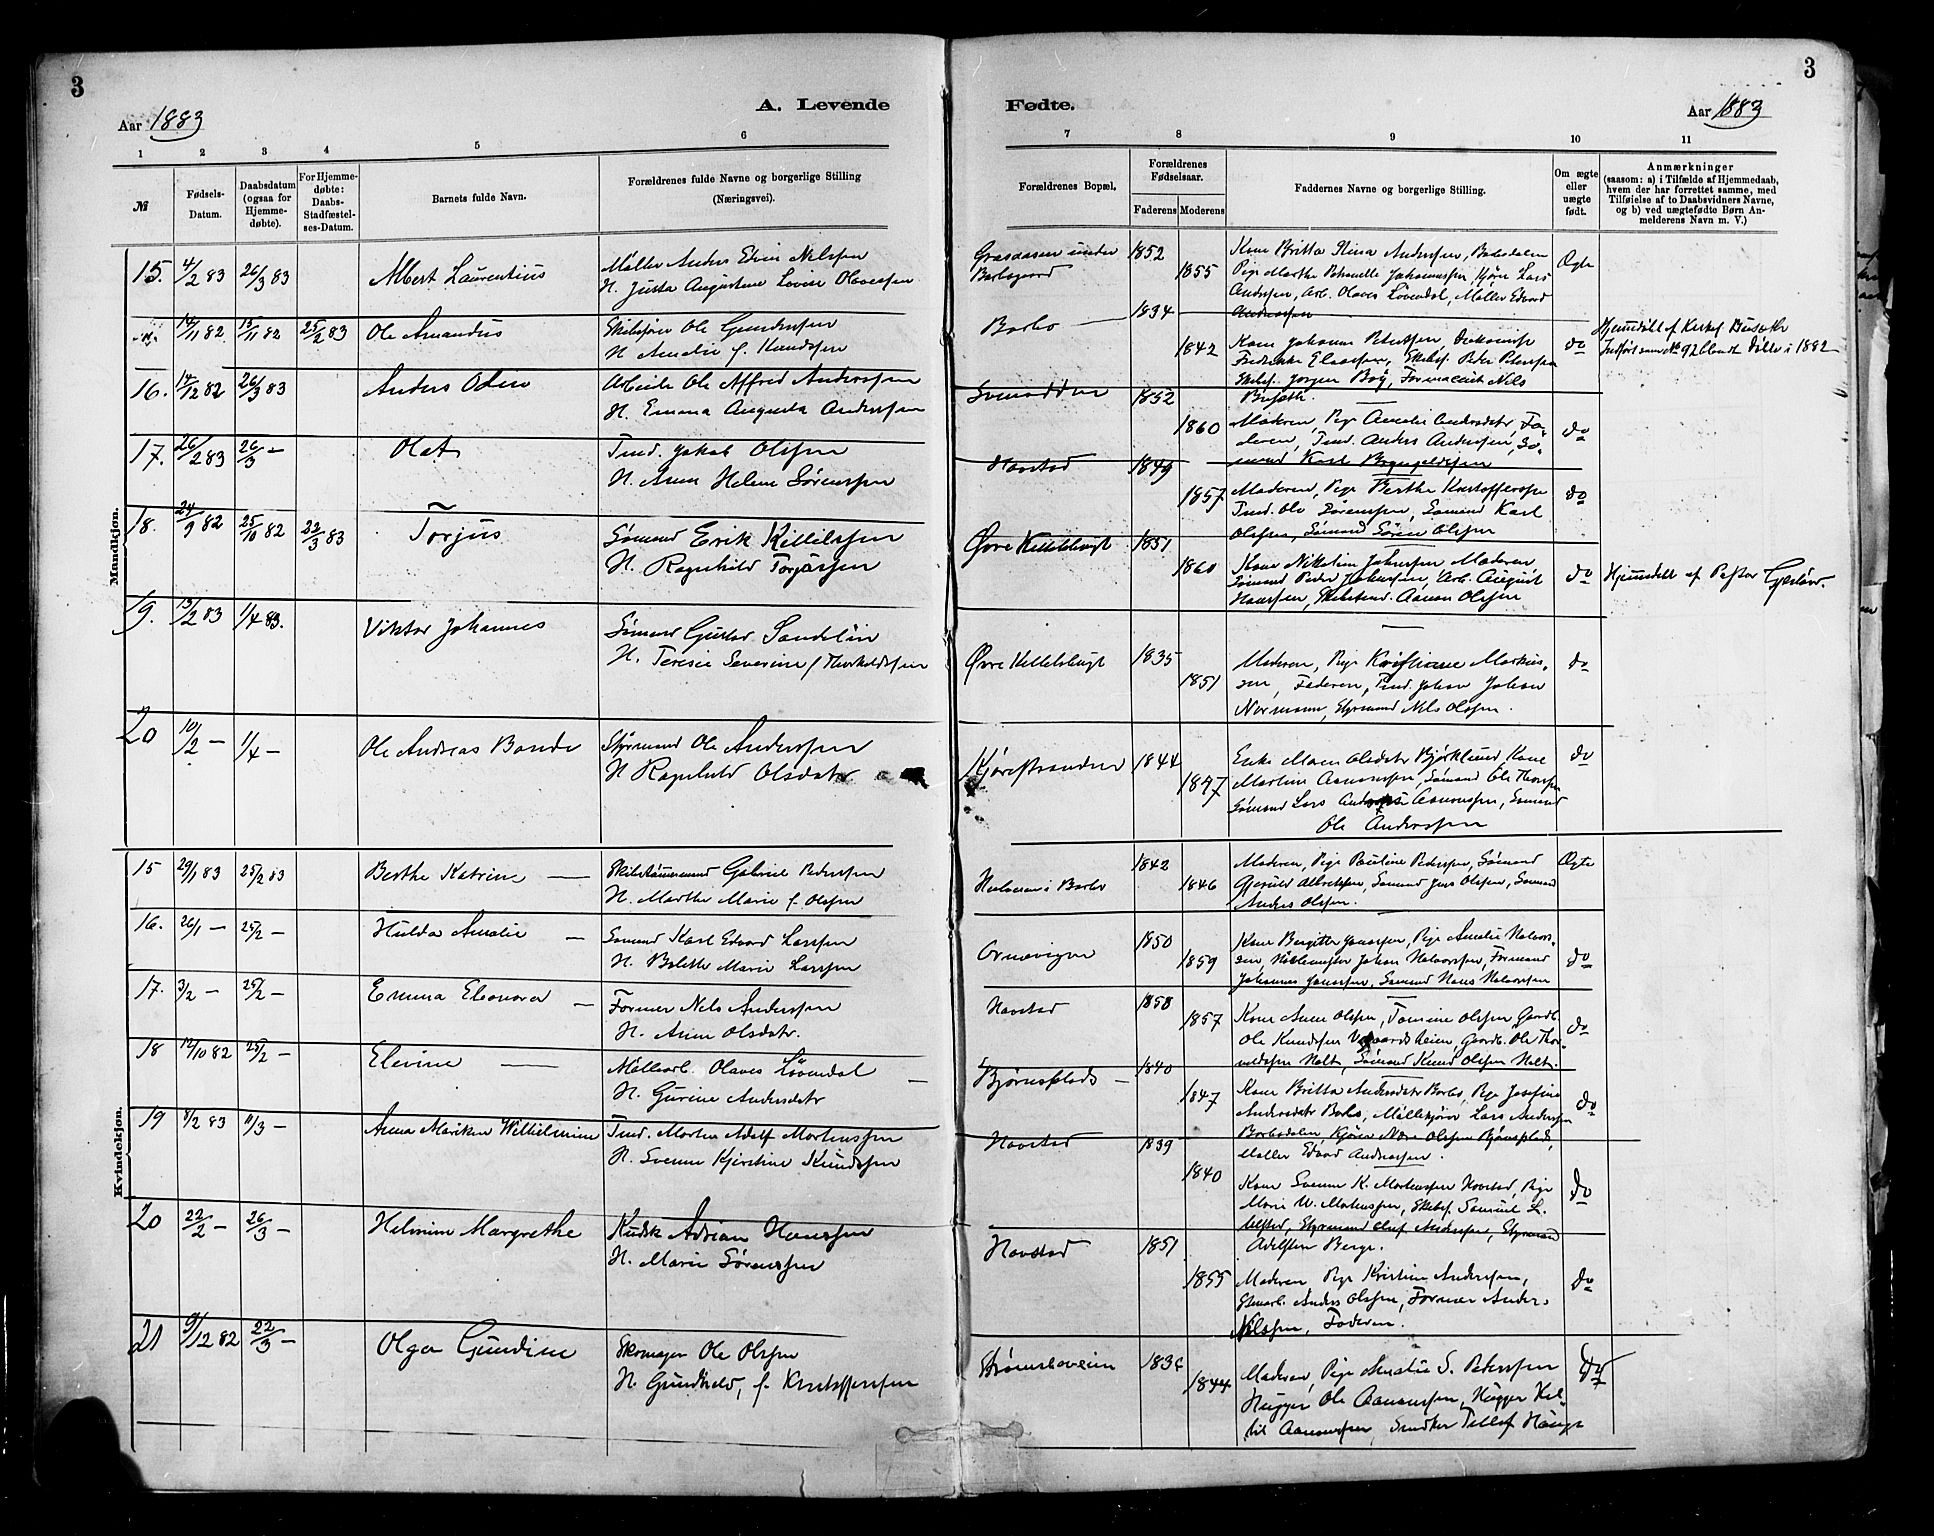 3
3
A. Levende
Fødte.
Aar 1883
Aar 1883
1 2 3 4 5 6
7 8 9 10 11
№
Fødsels-
Datum.
Daabsdatum
(ogsaa for
Hjemme-
døbte).
For Hjemme-
døbte:
Daabs-
Stadfæstel-
ses-Datum.
Barnets fulde Navn.
Forældrenes fulde Navne og borgerlige Stilling
(Næringsvei).
Forældrenes Bopæl.
Forældrenes
Fødselsaar.
Faderens Moderens
Faddernes Navne og borgerlige Stilling.
Om ægte
eller
uægte
født.
Anmærkninger
(saasom: a) i Tilfælde af Hjemmedaab,
hvem der har forrettet samme, med
Tilføielse af to Daabsvidners Navne,
og b) ved uægtefødte Børn An-
melderens Navn m. V.)
Mandkjøn.
15. 4/2 83 26/3 83
Albert Laurentius
Møller Anders Edvin Nilssen
H. Justa Augustine Lovise Olavessen
Grasaasen under
Barbogaard
1852
1855
Kone Britta Stina Anderssen, Barbodalen
Pige Marthe Petronelle Johannessen, Kjører Lars
Anderssen, Arb. Olaves Lövendal, Møller Edvard
Anderssen
Ægte
14/11 82 15/11 82 25/2 83
Ole Amandus
Skibsfører Ole Gunderssen
H Amalie f. Knudssen
Barbo
1834
1842
Kone Johanne Peterssen,
Fredrikke Claussen, Skibsf. Peder Peterssen
Skibsf. Jørgen Boy, Nils
do
Hjemdøbt af Kirkes.
Indført som № 92 blandt Døbte i 1882
16. 14/12 82 26/3 83
Anders Odin
Arbeider Ole Alfred Anderssen
H. Emma Augusta Anderssen
1852
1860
Moderen, Pige Amalie Andersdatr, Fa-
deren, Tmd. Anders Anderssen, Sø-
mand Karl
do
17. 26/2 83 26/3 —
Olaf
Tmd. Jakob Olssen
H. Anne Helene Sørenssen
Havstad
1849
1857
Moderen, Pige Berthe Kristofferssen
Tmd. Ole Sørenssen, Sømand Karl
Olssen, Sømand Søren Olssen
do
18. 24/9 82 25/10 82 22/3 83
Torjus
Sømand Erik Killilssen
H. Ragnhild Torjussen
Øvre Kittelsbugt
1851
1860
Kone Nikoline Johnssen, Moderen,
Sømand Peder Johnssen, Arb. August
Hanssen, Aanon Olssen
do
Hjemdøbt af Pastor
19. 13/2 83 1/4 83.
Viktor Johannes
Sømand Gustav Sandelin
H. Teresie Severine f Thorkildssen
Øvre Kittelsbugt
1835
1851
Moderen, Pige Kristiane Markus-
sen, Faderen, Tmd. Johan Johan
Normann, Styrmand Nils Olssen.
do
20 10/2 — 1/4 —
Ole Andreas Bonde
Styrmand Ole Anderssen
H Ragnhild Olsdatr.
1844
1847
Enke Maren Olsdatr Bjørklund, Kone
Martine Aanonssen, Sømand Ole Thorssen
Sømand Lars Aanonssen, Sømand
Ole Anderssen
do
Kvindekjøn.
15 29/1 83 25/2 83
Berthe Katrine —
Skibstømmermand Gabriel Pederssen
H. Marthe Marie f. Olssen
1842
1846
Moderen, Pige Pauline Pederssen, Sømand
Gjeruld Albretssen, Sømand Jens Olssen, Sømand
Anders Olssen.
Ægte
16. 26/1 — 25/2 —
Hulda Amalie —
Sømand Karl Edvard Larssen
H. Bolette Marie Larssen
Ornevigen
1850
1859
Kone Bergitte Janssen, Pige Amalie Halvors-
sen, Johan Halvorssen, Formand
Johannes Janssen, Sømand Hans Halvorssen
do
17. 3/2 — 25/2 —
Emma Eleonora —
Former Nils Anderssen
H. Anne Olsdatr.
Havstad
1858
1857
Kone Anne Olssen, Tomine Olssen, Gaardb.
Ole Knudssen Vegaardsheien, Gaardb. Ole Thor-
valdssen Holt, Sømand Knud Olssen Holt.
do
18 12/10 82 25/2 —
Elevine —
Møllearb. Olaves Lövendal —
H. Gurine Andersdatr
Bjørnsplads —
1840
1847
Kone Britta Andersdatr Barbo, Pige Josefine
Andersdatr Barbo, Møllekjører Lars Anderssen
Barbodalen, Kjører Olssen Bjørnsplads,
Møller Edvard Anderssen.
do
19 8/2 83 11/3 —
Anna Marikka Wilhelmine
Tmd. Morten Adolf Mortenssen
H. Svenne Kjerstine Knudssen
Havstad
1839
1840
Kone Svenne K. Mortenssen Havstad, Pige
Marie W. Mortenssen, Skibsf. Samuel L.
Ulsted, Styrmand Oluf Anderssen, Styrmand
Adelsten Berge.
do
20 22/2 — 26/3 —
Helmine Margrethe
Kudsk Adrian Hanssen
H. Marie Sørenssen
Havstad
1851
1855
Moderen, Pige Kristine Anderssen,
Stenarb. Anders Olssen, Former Anders
Nilssen, Faderen.
do
21 9/12 82 22/3 —
Olga Gundine
Skomager Ole Olssen
H. Gundhild, f. Kristofferssen
Strømsboveien
1834
1844
Moderen, Pige Amalie S. Pederssen
Hugger Ole Aanonssen, Hugger Kit-
til Aanonssen, Snedker Tellef Hauge
do